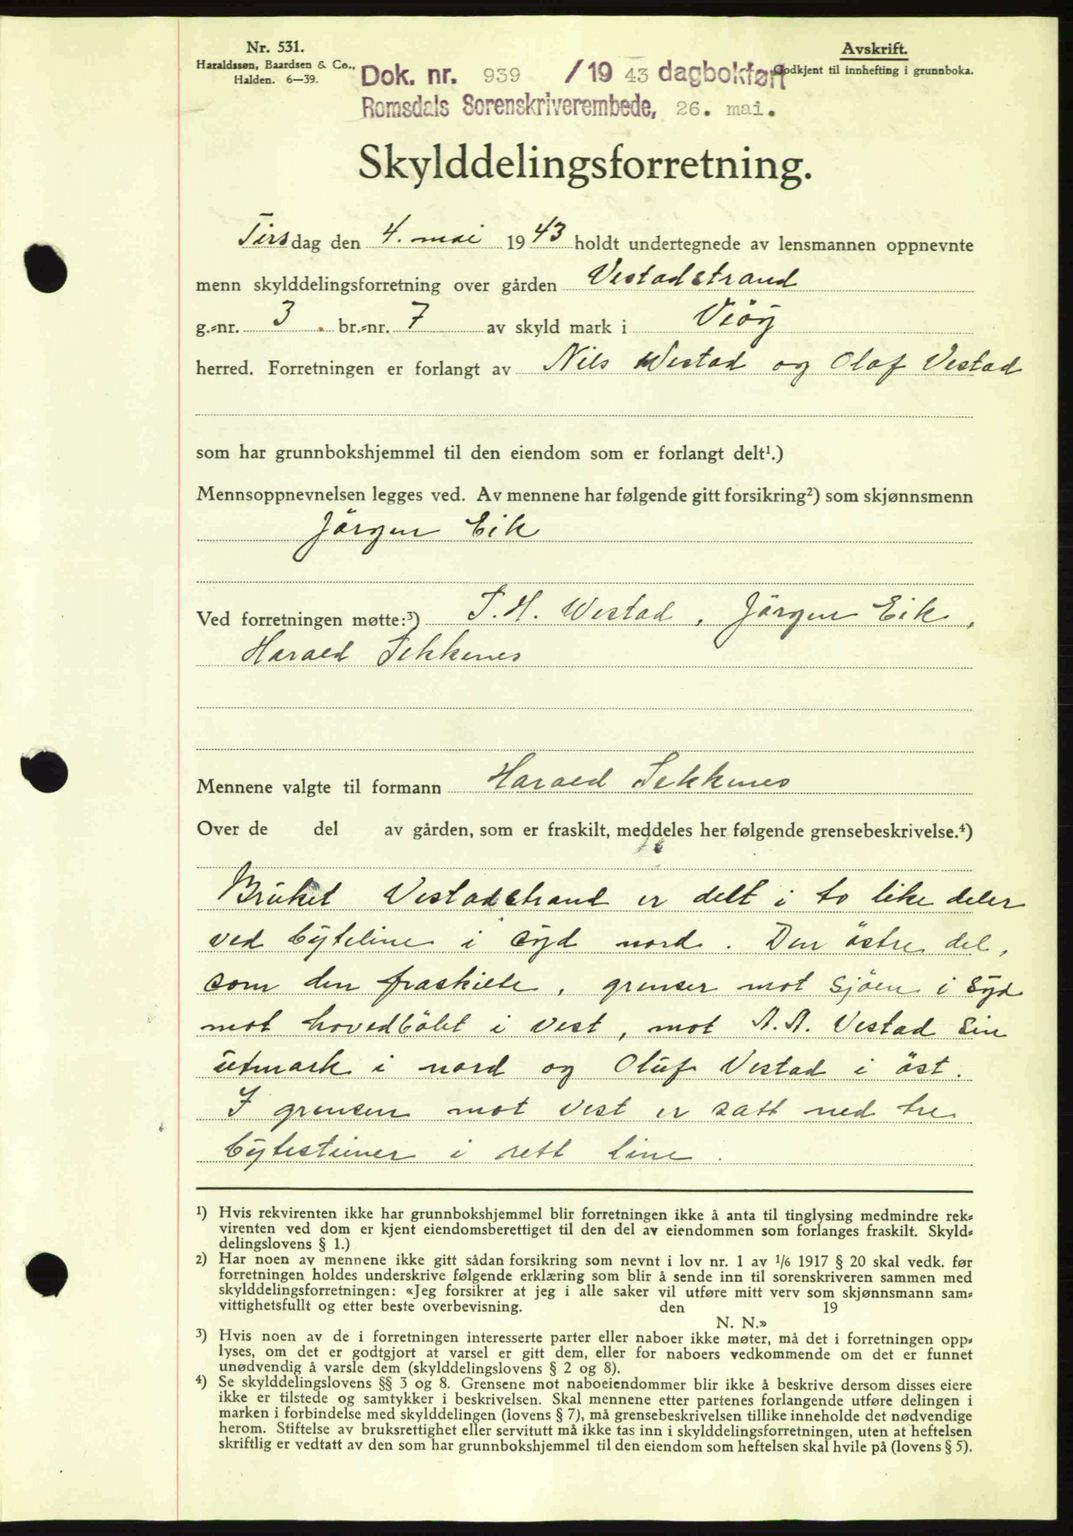 Nr. 531.
Haraldssøn, Baardsen & Co.,
Halden. 6—39.
Avskrift.
Godkjent til innhefting i grunnboka.
Dok. nr. 939 /19 43 dagbokført
Romsdals Sorenskriverembede, 26. mai.
Skylddelingsforretning.
Tirsdag den 4. mai 1943 holdt undertegnede av lensmannen oppnevnte
menn skylddelingsforretning over gården Vestadstrand
g.-nr. 3 . br.-nr. 7 av skyld mark i Veöy
herred. Forretningen er forlangt av Nils Westad og Olaf Vestad
som har grunnbokshjemmel til den eiendom som er forlangt delt¹.)
Mennsoppnevnelsen legges ved. Av mennene har følgende gitt forsikring²) som skjønnsmenn
Jörgen Eik
Ved forretningen møtte:³) T. H. Westad, Jörgen Eik,
Harald Sekkenes
Mennene valgte til formann Harald Sekkenes
Over de del av gården, som er fraskilt, meddeles her følgende grensebeskrivelse.⁴)
Brüket Vestadstrand er delt i to like deler
ved byteline i syd nord. Den östre del,
som den fraskilte, grenser mot sjöen i syd
mot hovedbölet i vest, mot A. A. Vestad sin
ütmark i nord og Olüf Vestad i öst.
I grensen mot vest er satt ned tre
bytesteiner i rett line.
¹) Hvis rekvirenten ikke har grunnbokshjemmel blir forretningen ikke å anta til tinglysing medmindre rek-
virenten ved dom er kjent eiendomsberettiget til den del av eiendommen som forlanges fraskilt. Skyld-
delingslovens § 1.)
²) Har noen av mennene ikke gitt sådan forsikring som nevnt i lov nr. 1 av ¹/₆ 1917 § 20 skal vedk. før
forretningen holdes underskrive følgende erklæring som blir å sende inn til sorenskriveren sammen med
skylddelingsforretningen: «Jeg forsikrer at jeg i alle saker vil utføre mitt verv som skjønnsmann sam-
vittighetsfullt og etter beste overbevisning. den 19
N. N.»
³) Hvis noen av de i forretningen interesserte parter eller naboer ikke møter, må det i forretningen opp-
lyses, om det er godtgjort at varsel er gitt dem, eller for naboers vedkommende om det er funnet
unødvendig å varsle dem (skylddelingslovens § 2 og 8).
⁴) Se skylddelingslovens §§ 3 og 8. Grensene mot naboeiendommer blir ikke å beskrive dersom disses eiere
ikke er tilstede og samtykker i beskrivelsen. Skal mennene etter partenes forlangende utføre delingen i
marken i forbindelse med skylddelingen (lovens § 7), må grensebeskrivelsen tillike inneholde det nødvendige
herom. Stiftelse av bruksrettighet eller servitutt må ikke tas inn i skylddelingsforretningen, uten at heftelsen
skriftlig er vedtatt av den som har grunnbokshjemmel til den eiendom som heftelsen skal hvile på (lovens § 5).